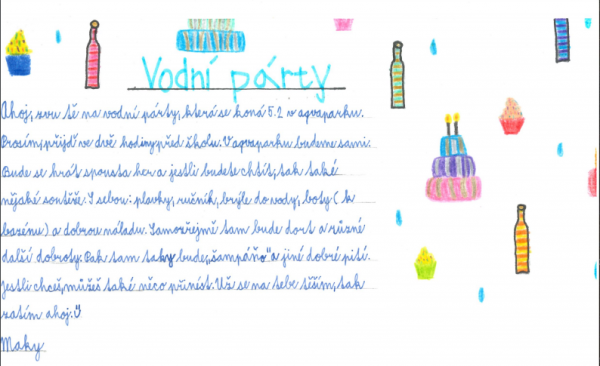 Vodní párty
Ahoj, zvu tě na vodní párty, která se koná 5.2 v aqvaparku.
Prosím, přijď ve dvě hodiny před školu. V aqvaparku budeme sami.
Bude se hrát spousta her a jestli budete chtít, tak také
nějaké soutěže. S sebou: plavky, ručník, brýle do vody, boty ( k
bazénu) a dobrou náladu. Samozřejmě tam bude dort a různé
další dobroty. Pak tam taky bude,,šampáňo" a jiné dobré pití.
Jestli chceš, můžeš také něco přinést. Už se na tebe těším, tak
zatím ahoj.
Maky